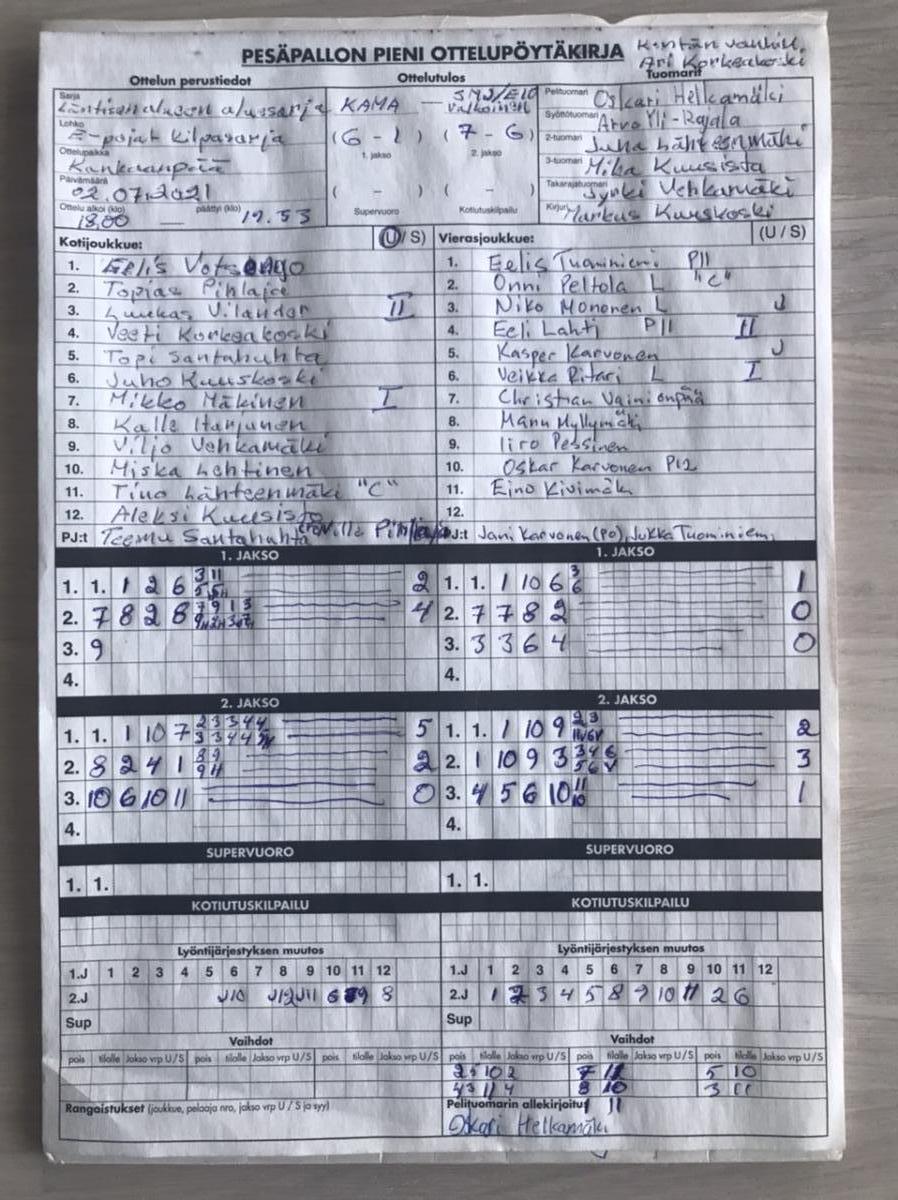 PESÄPALLON PIENI OTTELUPÖYTÄKIRJA
Kentän vanhin.
Ari Korkeakoski
Ottelun perustiedot
Ottelutulos
Tuomarit
Sarja
Läntisen alueen aluesarja
KAMA - SMJ/E10 Valkoinen
Pelituomari Oskari Helkamäki
Lohko
E-pojat kilpasarja
(6 - 1) (7 - 6)
1. jakso 2. jakso
Syöttötuomari Arvo Yli-Rajala
Ottelupaikka
Kankaanpää
2-tuomari Juha Lähteenmäki
3-tuomari Mika Kuusisto
Päivämäärä
02.07.2021
( - ) ( - )
Supervuoro Kotiutuskilpailu
Takarajatuomari Jyrki Vehkamäki
Ottelu alkoi (klo) 18.00 päättyi (klo) 19.53
Kirjuri Markus Kuuskoski
Kotijoukkue: (U / S)
1. Eelis
2. Topias Pihlaja
3. Luukas Vilander II
4. Veeti Korkeakoski
5. Topi Santahuhta
6. Juho Kuuskoski
7. Mikko Mäkinen I
8. Kalle Harjunen
9. Viljo Vehkamäki
10. Miska Lehtinen
11. Tino Lähteenmäki "C"
12. Aleksi Kuusisto
PJ:t Teemu Santahuhta Ville Pihlaja
Vierasjoukkue: (U / S)
1. Eelis Tuominiemi P11
2. Onni Peltola L "C"
3. Niko Mononen L J
4. Eeli Lahti P11 II
5. Kasper Karvonen J
6. Veikka Ritari L I
7. Christian Vainionpää
8. Manu Myllymäki
9. Iiro Pessinen
10. Oskar Karvonen P12
11. Eino Kivimäki
12.
PJ:t Jani Karvonen (PO), Jukka Tuominiemi
1. JAKSO
1. 1. 1 2 6 2
2. 7 8 2 6 4
3. 9
4.
1. JAKSO
1. 1. 1 10 6 3 6 1
2. 7 7 8 2 0
3. 3 3 6 4 0
4.
2. JAKSO
1. 1. 1 10 7 5
2. 8 2 4 1 2
3. 10 6 10 11 0
4.
2. JAKSO
1. 1. 1 10 9 2
2. 1 10 9 3 3
3. 4 5 6 10 1
4.
SUPERVUORO
1. 1.
SUPERVUORO
1. 1.
KOTIUTUSKILPAILU
KOTIUTUSKILPAILU
Lyöntijärjestyksen muutos
1.J 1 2 3 4 5 6 7 8 9 10 11 12
2.J J10 J12 J11 6 9 8
Sup
Lyöntijärjestyksen muutos
1.J 1 2 3 4 5 6 7 8 9 10 11 12
2.J 1 7 3 4 5 8 9 10 11 2 6
Sup
Vaihdot
pois tilalle Jakso vrp U/S pois tilalle Jakso vrp U/S pois tilalle Jakso vrp U/S
Vaihdot
pois tilalle Jakso vrp U/S pois tilalle Jakso vrp U/S pois tilalle Jakso vrp U/S
5 10
8 10
Rangaistukset (joukkue, pelaaja nro, jakso vrp U / S ja syy)
Pelituomarin allekirjoitus
Oskari Helkamäki